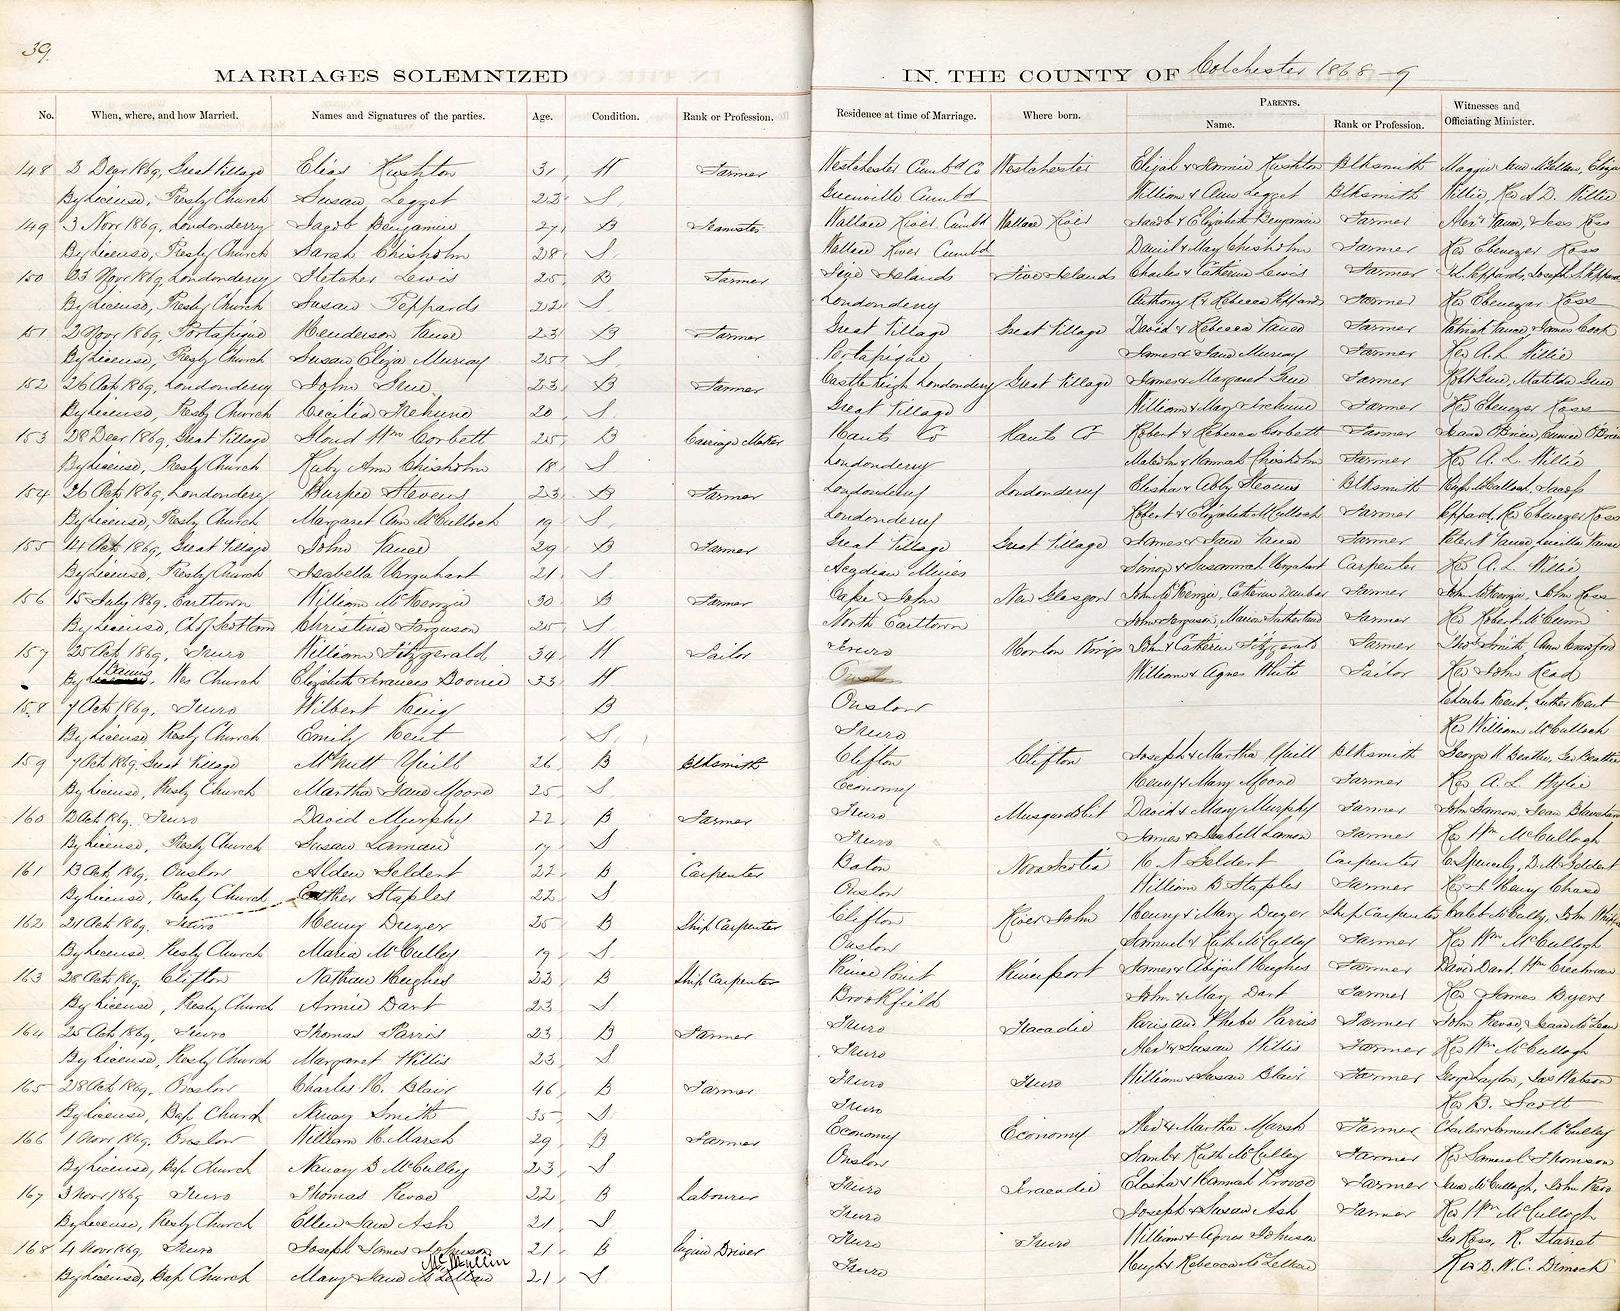 39.
MARRIAGES SOLEMNIZED IN THE COUNTY OF Colchester 1868-9
No. When, where, and how Married. Names and Signatures of the parties. Age. Condition. Rank or Profession. Residence at time of Marriage. Where born. PARENTS. Name. Rank or Profession. Witnesses and Officiating Minister.
148 2 Decr 1869, Great Village Elias Rushton 31 W Farmer Westchester Cumbd Co Westchester Elijah & Rushton Blksmith Maggie Jane McLellan, Eliza
By License, Presby Church Susan Legget 23 S. Greenville Cumbd William & Ann Legget Blksmith Willie, Rev A. D. Willie
149 3 Novr 1869, Londonderry Jacob Benjamin 27 B Teamster Wallace River Cumbd Wallace River Jacob & Elizabeth Benjamin Farmer Alexr Vance, Jess Ross
By License, Presby Church Sarah Chisholm 28 S. Wallace River Cumbd Daniel & Mary Chisholm Farmer Rev Ebenezer Ross
150 23 Novr 1869, Londonderry Fletcher Lewis 25 B Farmer Five Islands Five Islands Charles & Catherine Lewis Farmer Peppards, Joseph Peppard
By License, Presby Church Susan Peppards 22 S. Londonderry Anthony & Rebecca Peppards Farmer Rev Ebenezer Ross
151 2 Novr 1869, Portapique Henderson Vance 23 B Farmer Great Village Great Village David & Rebecca Vance Farmer Patrick Vance, James Cook
By License, Presby Church Susan Eliza Murray 25 S. Portapique James & Jane Murray Farmer Rev A. L. Willie
152 26 Oct 1869, Londonderry John 23 B Farmer Castlereigh Londonderry Great Village James & Margaret Farmer Robt Matilda
By License, Presby Church Cecilia 20 S. Great Village William & Mary Farmer Rev Ebenezer Ross
153 28 Decr 1869, Great Village Wm Corbett 25 B Carriage Maker Hants Co Hants Co Robert & Rebecca Corbett Farmer O'Brien, Eunice O'Brien
By License, Presby Church Ruby Ann Chisholm 18 S Londonderry Malcolm & Hannah Chisholm Farmer Rev A. L. Willie
154 26 Oct 1869, Londonderry Burpee Stevens 23 B Farmer Londonderry Londonderry Elisha & Abby Stevens Blksmith Hugh McCulloch, Jacob
By License, Presby Church Margaret Ann McCulloch 19 S. Londonderry Robert & Elizabeth McCulloch Farmer Peppard, Rev Ebenezer Ross
155 14 Oct 1869, Great Village John Vance 29 B Farmer Great Village Great Village James & Jane Vance Farmer Robert Vance, Lucilla Vance
By License, Presby Church Isabella Urquhart 21 S Acadian Mines Simon & Susannah Urquhart Carpenter Rev A. L. Willie
156 15 July 1869, Earltown William McKenzie 30 B Farmer Cape John New Glasgow John McKenzie, Catherine Dunbar Farmer John McKenzie, John Ross
By License, Ch of Scotland Christina Ferguson 25 S. North Earltown John Ferguson, Marion Sutherland Farmer Rev Robert McCunn
157 25 Oct 1869, Truro William Fitzgerald 34 W Sailor Truro Horton Kings John & Catherine Fitzgerald Farmer Thos Smith, Ann Crawford
By Banns, Wes Church Elizabeth Frances Doonie 33 W Onslow William & Agnes White Tailor Rev John Read
158 7 Oct 1869, Truro Wilbert King B Onslow Charles Kent, Luther Kent
By License, Presby Church Emily Kent S. Truro Rev William McCulloch
159 7 Oct 1869, Great Village McNutt Yuill 26 B Blksmith Clifton Clifton Joseph & Martha Yuill Blksmith George W. Beattie, Geo Beattie
By License, Presby Church Martha Jane Moore 25 S Economy Henry & Mary Moore Farmer Rev A. L. Wylie
160 12 Oct 1869, Truro David Murphy 22 B Farmer Truro Musquodobit David & Mary Murphy Farmer John Lamon, Jean Blanchard
By License, Presby Church Susan Laman 17 S Truro James & Isabell Lamon Farmer Rev Wm McCullogh
161 13 Oct 1869, Onslow Alden Geldert 22 B Carpenter Boton Nova Scotia H. N. Geldert Carpenter C Spencely, D. M. Geddert
By License, Presby Church Esther Staples 22 S Onslow William B Staples Farmer Rev J. Henry Chase
162 21 Oct 1869, Truro Henry Drezer 25 B Ship Carpenter Clifton River John Henry & Mary Drezer Ship Carpenter Caleb McCully, John
By License, Presby Church Maria McCulley 19 S Onslow Samuel & Ruth McCulley Farmer Rev Wm McCullogh
163 28 Oct 1869, Clifton Nathan Hughes 22 B Ship Carpenter Prince Port Princeport James & Abigail Hughes Farmer David Dart, Wm Creelman
By License, Presby Church Annie Dart 23 S Brookfield John & Mary Dart Farmer Rev James Byers
164 25 Oct 1869, Truro Thomas Parris 23 B Farmer Truro Tracadie Paris and Phebe Parris Farmer John Revoe, Isaac McLean
By License, Presby Church Margaret Willis 23 S Truro Alexr & Susan Willis Farmer Rev Wm McCullogh
165 28 Oct 1869, Onslow Charles H. Blair 46 B Farmer Truro Truro William & Susan Blair Farmer George Layton, Jas Watson
By License, Bap Church Nancy Smith 35 S Truro Rev B. Scott
166 1 Novr 1869, Onslow William H. Marsh 29 B Farmer Economy Economy Alexr & Martha Marsh Farmer Charles & Samuel McCulley
By License, Bap Church Nancy B McCulley 23 S Onslow Saml & Ruth McCulley Farmer Rev Samuel Thomson
167 3 Novr 1869 Truro Thomas Revoe 22 B Labourer Truro Tracadie Elisha & Hannah Provoe Farmer McCullogh, John
By License, Presby Church Ellen Jane Ash 21 S Truro Joseph & Susan Ash Farmer Rev Wm McCullogh
168 4 Novr 1869, Truro Joseph James Johnson 21 B Engine Driver Truro Truro William & Agnes Johnson Geo Ross, R. Starret
McMullin
By License, Bap Church Mary Jane McLellan 21 S Truro Hugh & Rebecca McLellan Rev D. W. C. Dimock